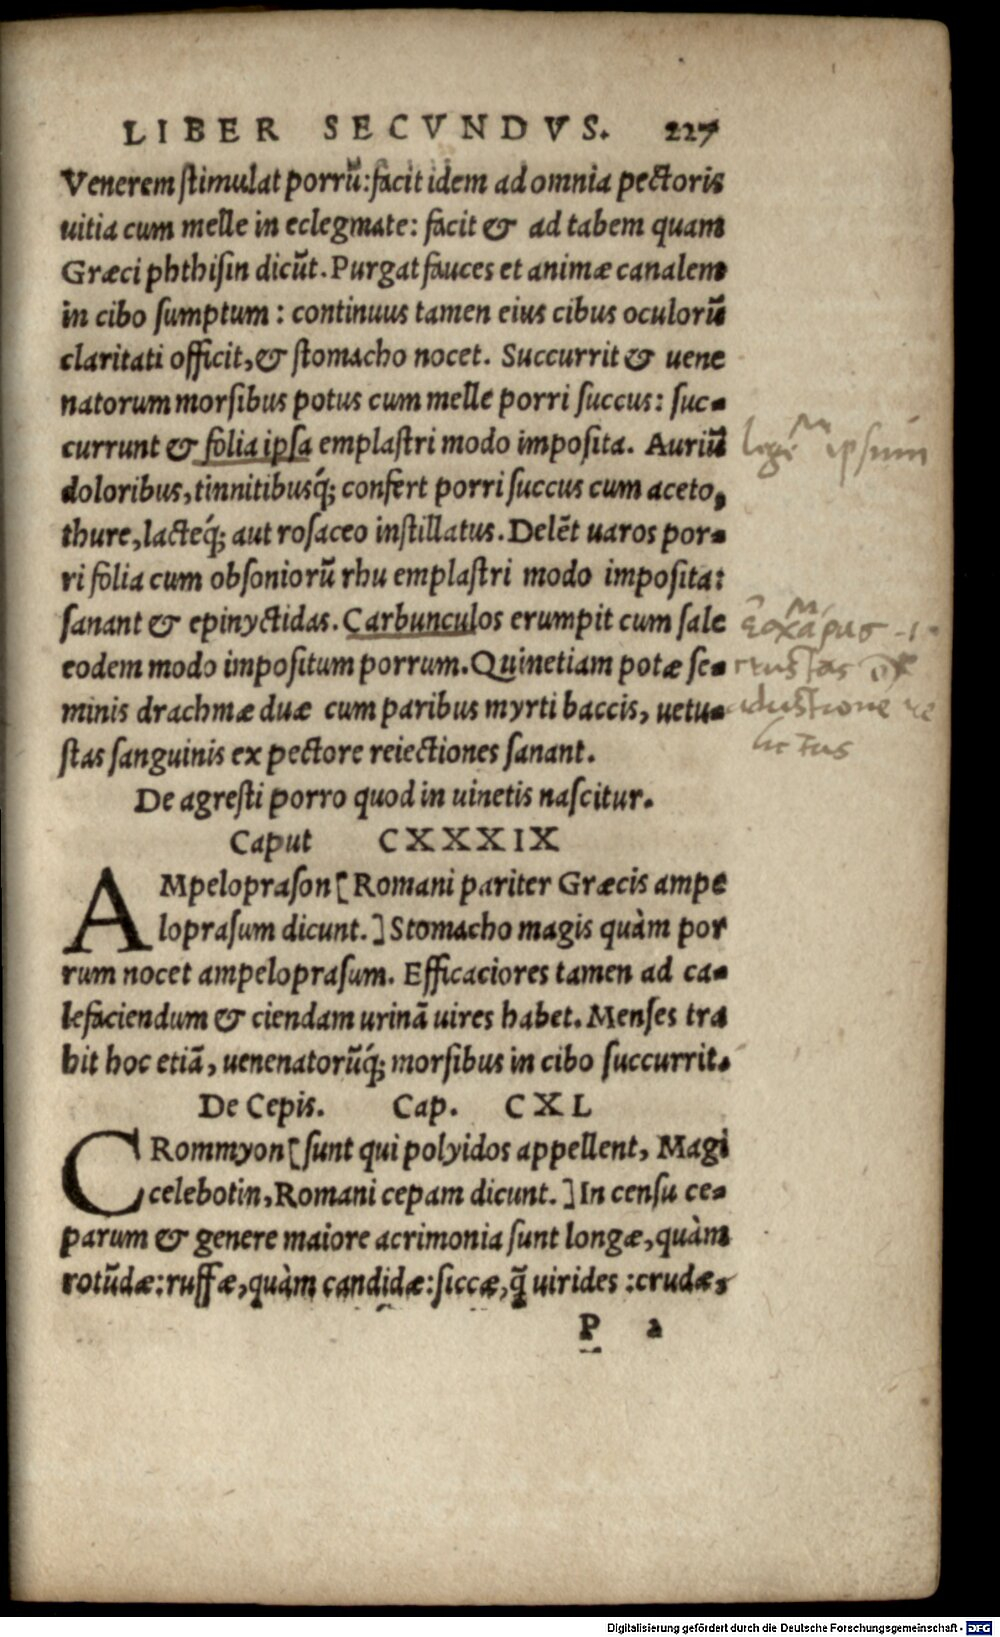 LIBER SECVNDVS. 227
Venerem stimulat porrũ: facit idem ad omnia pectoris
uitia cum melle in eclegmate: facit & ad tabem quam
Græci phthisin dicũt. Purgat fauces et animæ canalem
in cibo sumptum: continuus tamen eius cibus oculorũ
claritati officit, & stomacho nocet. Succurrit & uene
natorum morsibus potus cum melle porri succus: suc-
currunt & folia ipsa emplastri modo imposita. Auriũ
lege ipsum
doloribus, tinnitibusq́; confert porri succus cum aceto,
thure, lacteq́; aut rosaceo instillatus. Delẽt uaros por-
ri folia cum obsoniorũ rhu emplastri modo imposita:
sanant & epinyctidas. Carbunculos erumpit cum sale
eodem modo impositum porrum. Quinetiam potæ se-
crustas
minis drachmæ duæ cum paribus myrti baccis, uetu-
adustione re
stas sanguinis ex pectore reiectiones sanant.
lictas
De agresti porro quod in uinetis nascitur.
Caput CXXXIX
AMpeloprason [Romani pariter Græcis ampe
loprasum dicunt.] Stomacho magis quàm por
rum nocet ampeloprasum. Efficaciores tamen ad ca-
lefaciendum & ciendam urinã uires habet. Menses tra
hit hoc etiã, uenenatorũq́; morsibus in cibo succurrit.
De Cepis. Cap. CXL
CRommyon [sunt qui polyidos appellent, Magi
celebotin, Romani cepam dicunt.] In censu ce-
parum & genere maiore acrimonia sunt longæ, quàm
rotũdæ: ruffæ, quàm candidæ: siccæ, q̃ uirides: crudæ,
P a
Digitalisierung gefördert durch die Deutsche Forschungsgemeinschaft - DFG